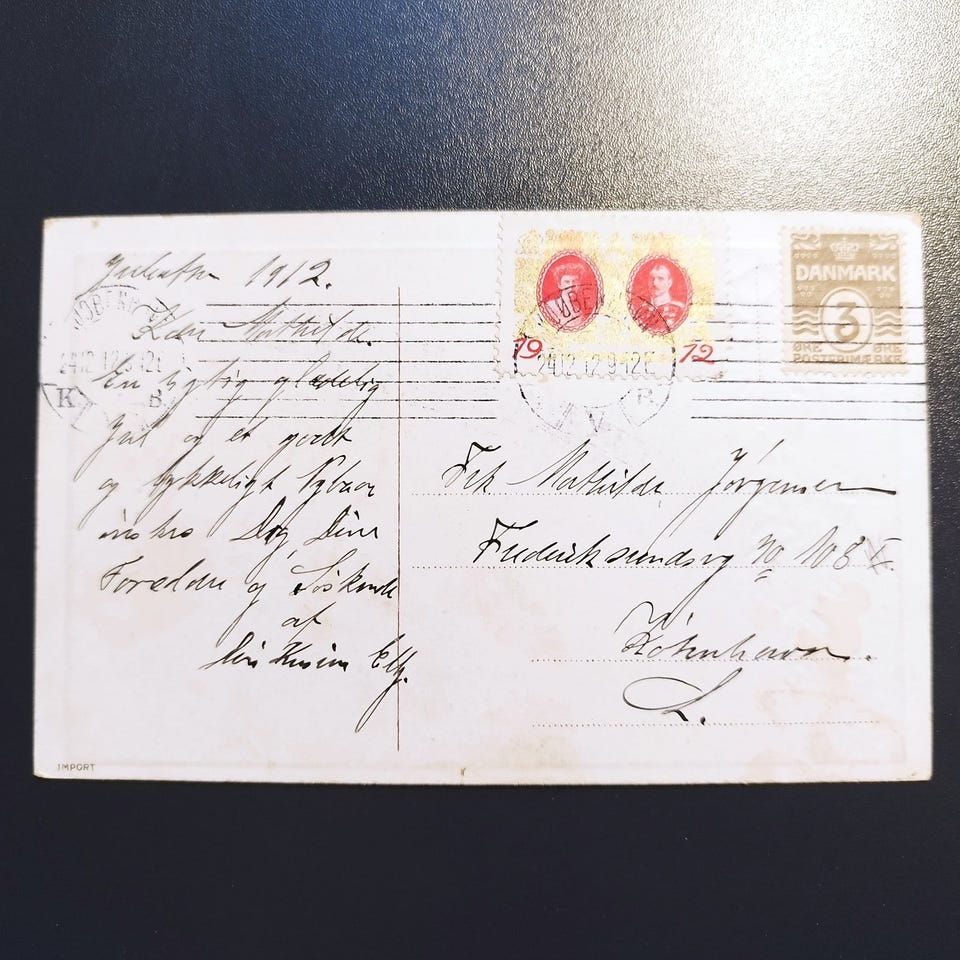 Juleaften 1912.
Kære Mathilde.
En rigtig glædelig
Jul og et godt
og lykkeligt Nytaar
ønskes Dig, Dine
Forældre og Søskende
af
Din Kusine Elly.
IMPORT
19 12
DANMARK
3
ØRE ØRE
POSTFRIMÆRKE
KJØBENHAVN
24.12.12.9-12E
K B
KJØBENHAVN
24.12.12.9-12E
B
Frk Mathilde Jørgensen
Frederikssundsvej No 108
København.
L.